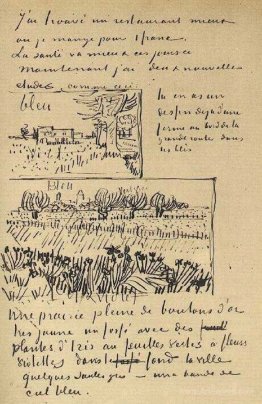 J'ai trouvé un restaurant mieux
ou je mange pour 1 franc.
La santé va mieux ces jours ci
Maintenant j'ai deux nouvelles
etudes comme ceci
bleu
tu en as un
dessin déjà d'une
ferme au bord de la
grande route dans
les blés
Bleu
Une prairie pleine de boutons d'or
tres jaune un fossé avec des
plantes d'iris au feuilles vertes à fleurs
violettes dans le fond la ville
quelques saules gris – une bande de
ciel bleu.